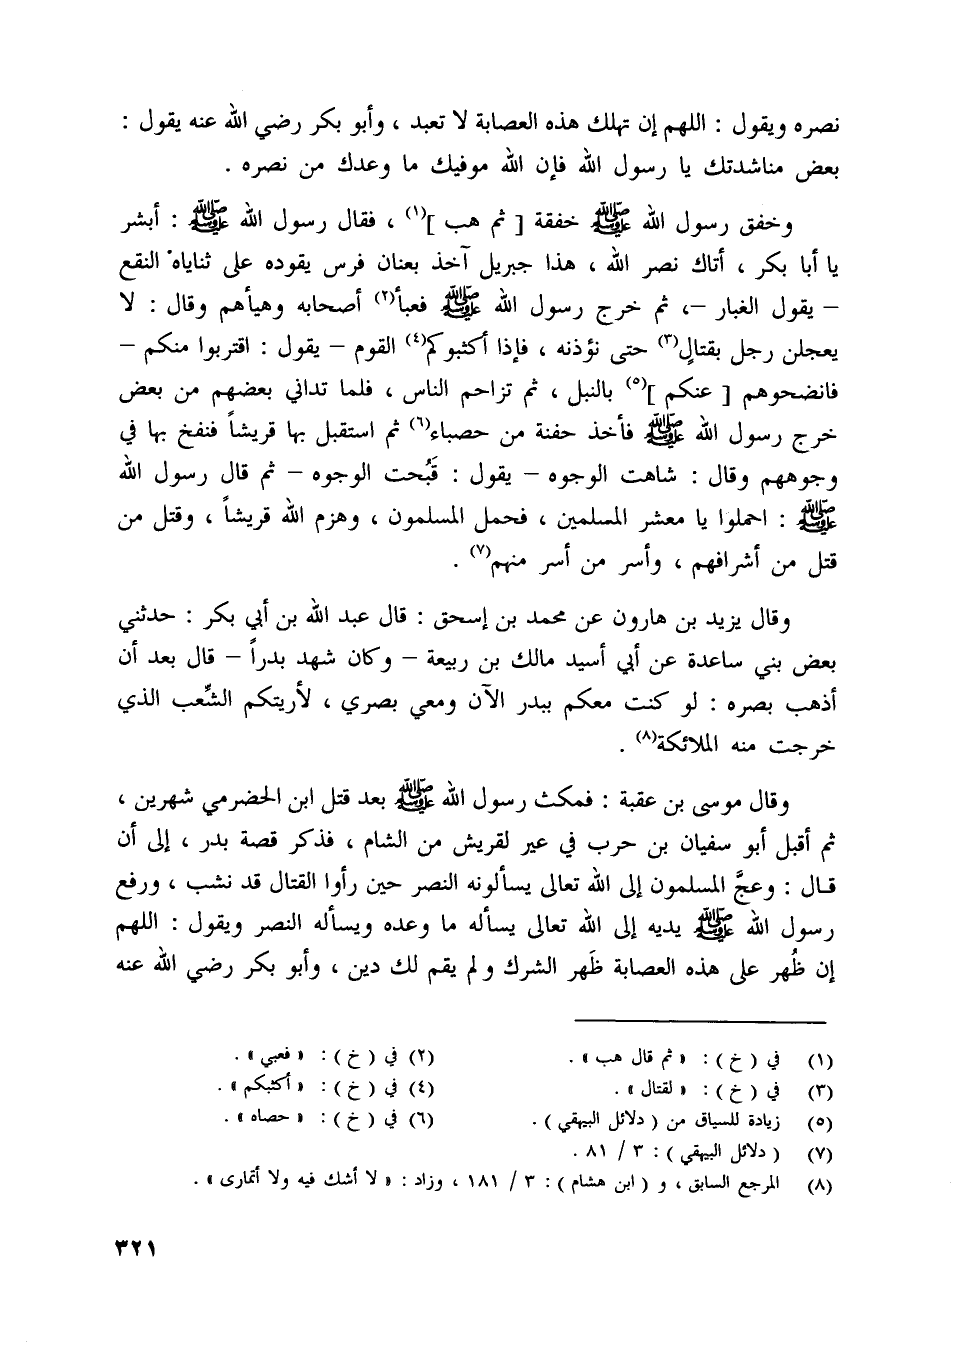 نصره ويقول : اللهم إن تهلك هذه العصابة لا تعبد ، وأبو بكر رضي الله عنه يقول :
بعض مناشدتك يا رسول الله فإن الله موفيك ما وعدك من نصره .
وخفق رسول الله ﷺ خفقة [ ثم هب ](١) ، فقال رسول الله ﷺ : أبشر
يا أبا بكر ، أتاك نصر الله ، هذا جبريل آخذ بعنان فرس يقوده على ثناياه النقع
– يقول الغبار –، ثم خرج رسول الله ﷺ فعبأ(٢) أصحابه وهيأهم وقال : لا
يعجلن رجل بقتالٍ(٣) حتى نؤذنه ، فإذا أكثبوكم(٤) القوم – يقول : اقتربوا منكم –
فانضحوهم [ عنكم ](٥) بالنبل ، ثم تزاحم الناس ، فلما تدانى بعضهم من بعض
خرج رسول الله ﷺ فأخذ حفنة من حصباء(٦) ثم استقبل بها قريشاً فنفخ بها في
وجوههم وقال : شاهت الوجوه – يقول : قَبُحت الوجوه – ثم قال رسول الله
ﷺ : احملوا يا معشر المسلمين ، فحمل المسلمون ، وهزم الله قريشاً ، وقتل من
قتل من أشرافهم ، وأسر من أسر منهم(٧) .
وقال يزيد بن هارون عن محمد بن إسحق : قال عبد الله بن أبي بكر : حدثني
بعض بني ساعدة عن أبي أسيد مالك بن ربيعة – وكان شهد بدراً – قال بعد أن
أذهب بصره : لو كنت معكم ببدر الآن ومعي بصري ، لأريتكم الشِّعب الذي
خرجت منه الملائكة(٨) .
وقال موسى بن عقبة : فمكث رسول الله ﷺ بعد قتل ابن الحضرمي شهرين ،
ثم أقبل أبو سفيان بن حرب في عير لقريش من الشام ، فذكر قصة بدر ، إلى أن
قـال : وعجَّ المسلمون إلى الله تعالى يسألونه النصر حين رأوا القتال قد نشب ، ورفع
رسول الله ﷺ يديه إلى الله تعالى يسأله ما وعده ويسأله النصر ويقول : اللهم
إن ظُهر على هذه العصابة ظَهر الشرك ولم يقم لك دين ، وأبو بكر رضي الله عنه
(١) في ( خ ) : « ثم قال هب » . (٢) في ( خ ) : « فعبي » .
(٣) في ( خ ) : « لقتال » . (٤) في ( خ ) : « أكثبكم » .
(٥) زيادة للسياق من ( دلائل البيهقي ) . (٦) في ( خ ) : « حصاه » .
(٧) ( دلائل البيهقي ) : ٣ / ٨١ .
(٨) المرجع السابق ، و ( ابن هشام ) : ٣ / ١٨١ ، وزاد : « لا أشك فيه ولا أتمارى » .
٣٢١